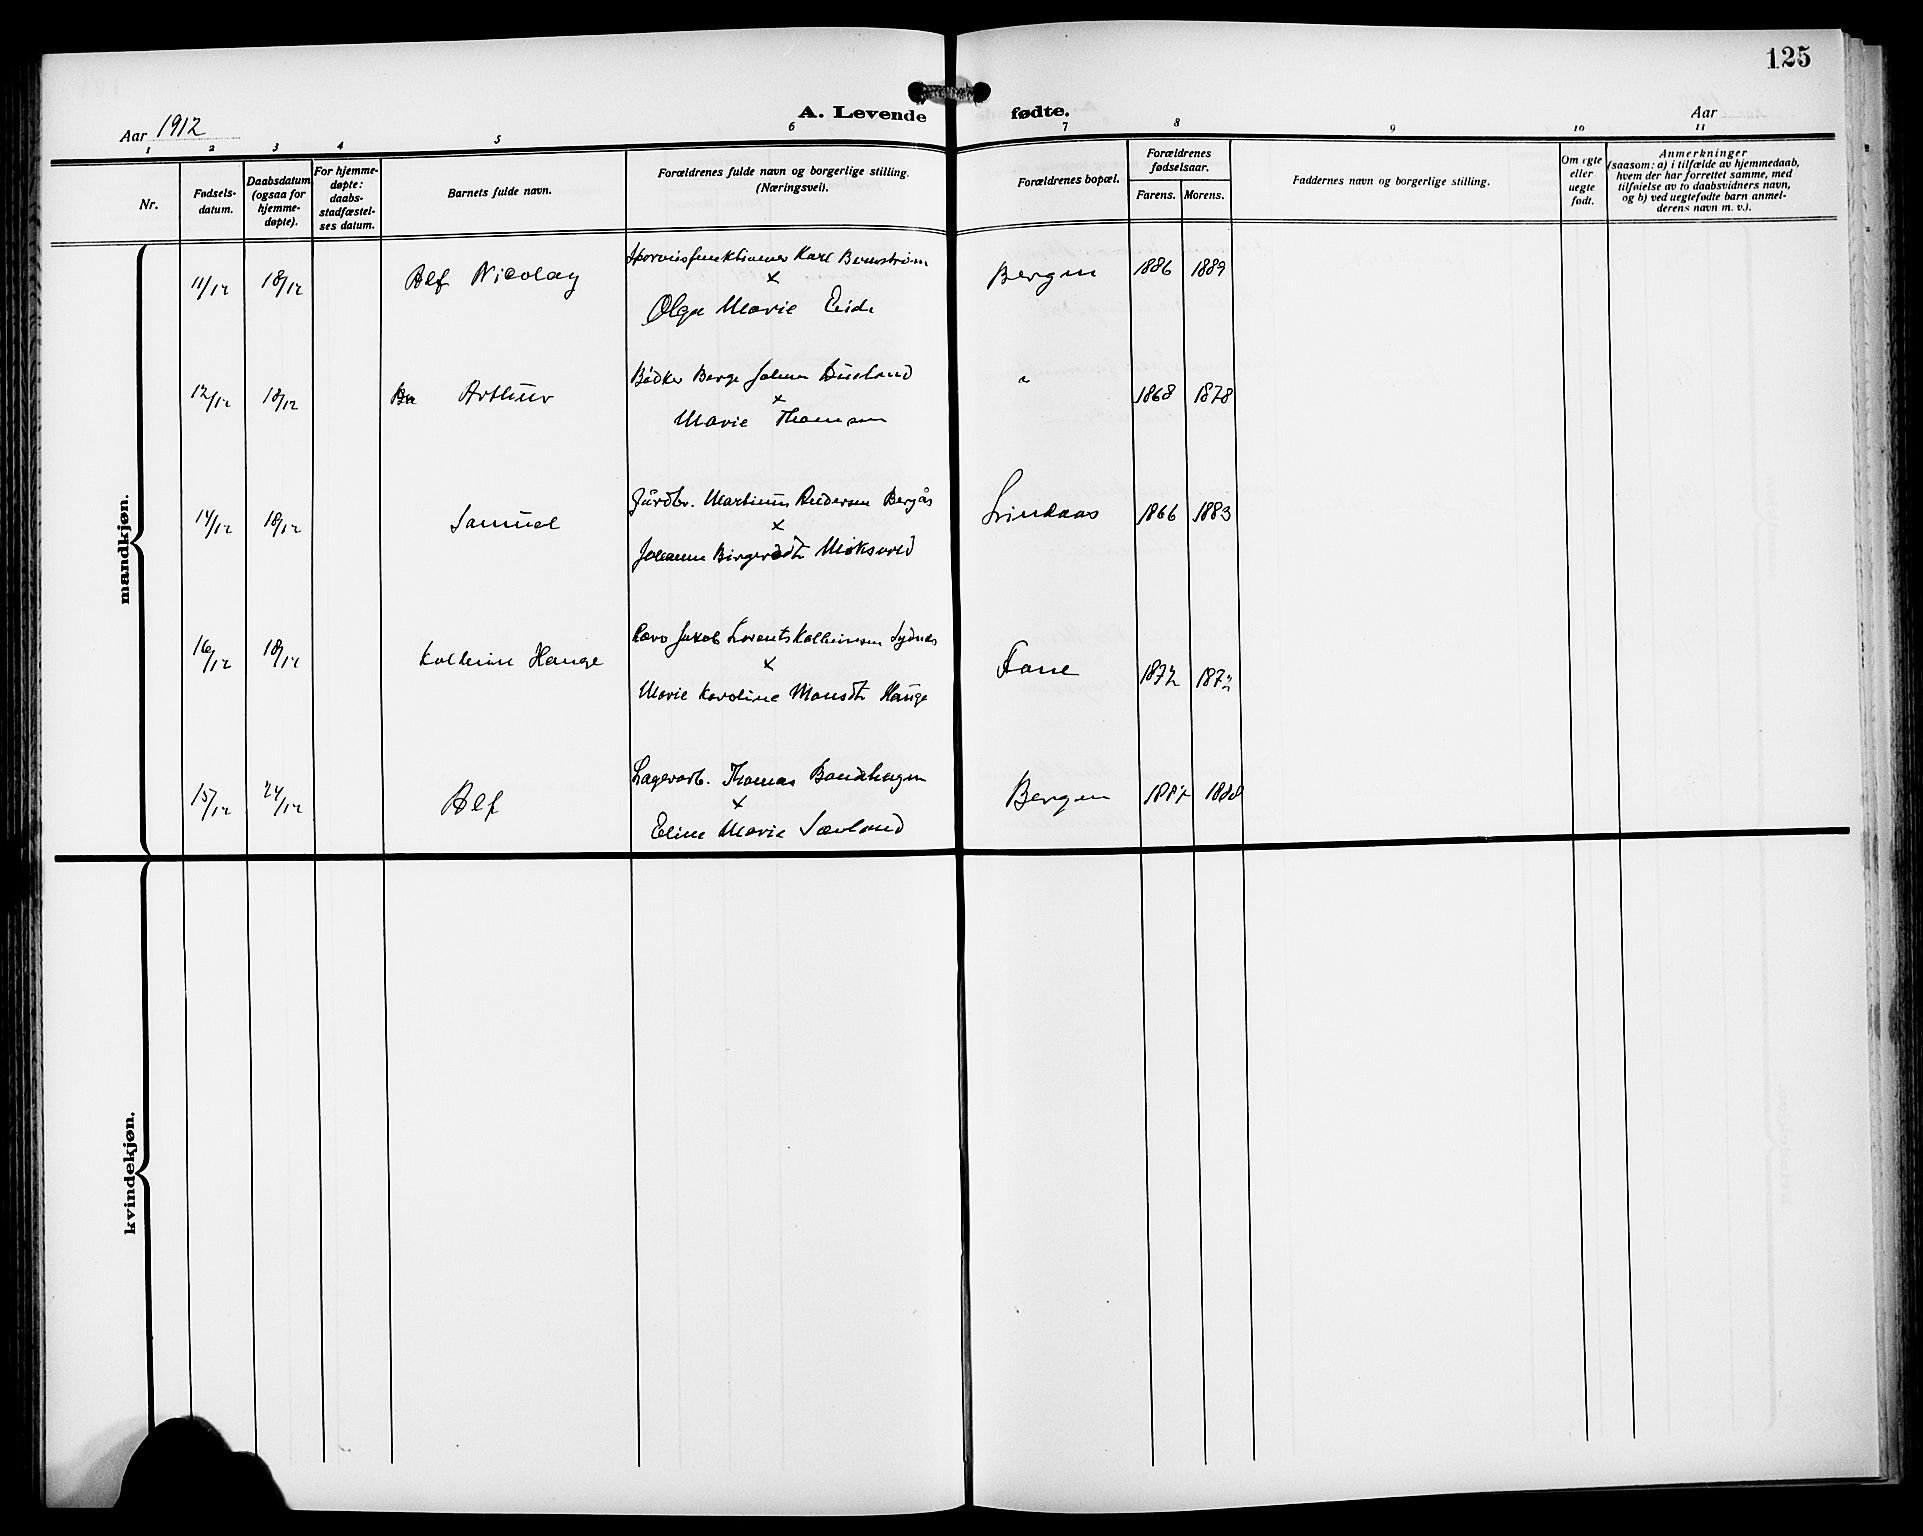 125
A. Levende fødte.
Aar 1912
Aar
1 2 3 4 5 6 7 8 9 10 11
Nr.
Fødsels-
datum.
Daabsdatum
(ogsaa for
hjemme-
døpte).
For hjemme-
døpte:
daabs-
stadfæstel-
ses datum.
Barnets fulde navn.
Forældrenes fulde navn og borgerlige stilling.
(Næringsvei).
Forældrenes bopæl.
Forældrenes
fødselsaar.
Farens. Morens.
Faddernes navn og borgerlige stilling.
Om egte
eller
uegte
født.
Anmerkninger
(saasom: a) i tilfælde av hjemmedaab,
hvem der har forrettet samme, med
tilføielse av to daabsvidners navn,
og b) ved uegtefødte barn anmel-
derens navn m. v.).
mandkjøn.
11/12 18/12 Alf Nicolay Karl Bernstrøm Bergen 1886 1889
x
Olga Marie Eide
12/12 18/12 Arthur Bødker Berge Johan Dueland " 1868 1878
x
Marie Thomsen
14/12 18/12 Samuel Jordbr. Martinus Andersen Bergås Lindaas 1866 1883
x
Johanne Birgersdtr
16/12 18/12 Kolbein Hauge Jakob Lorents Kolbeinsen Sydnes Fane 1872 1872
x
Marie Karoline Monsdtr Hauge
15/12 24/12 Alf Lagerarb. Thomas Bergen 1887 1888
x
Eline Marie Sævland
kvindekjøn.